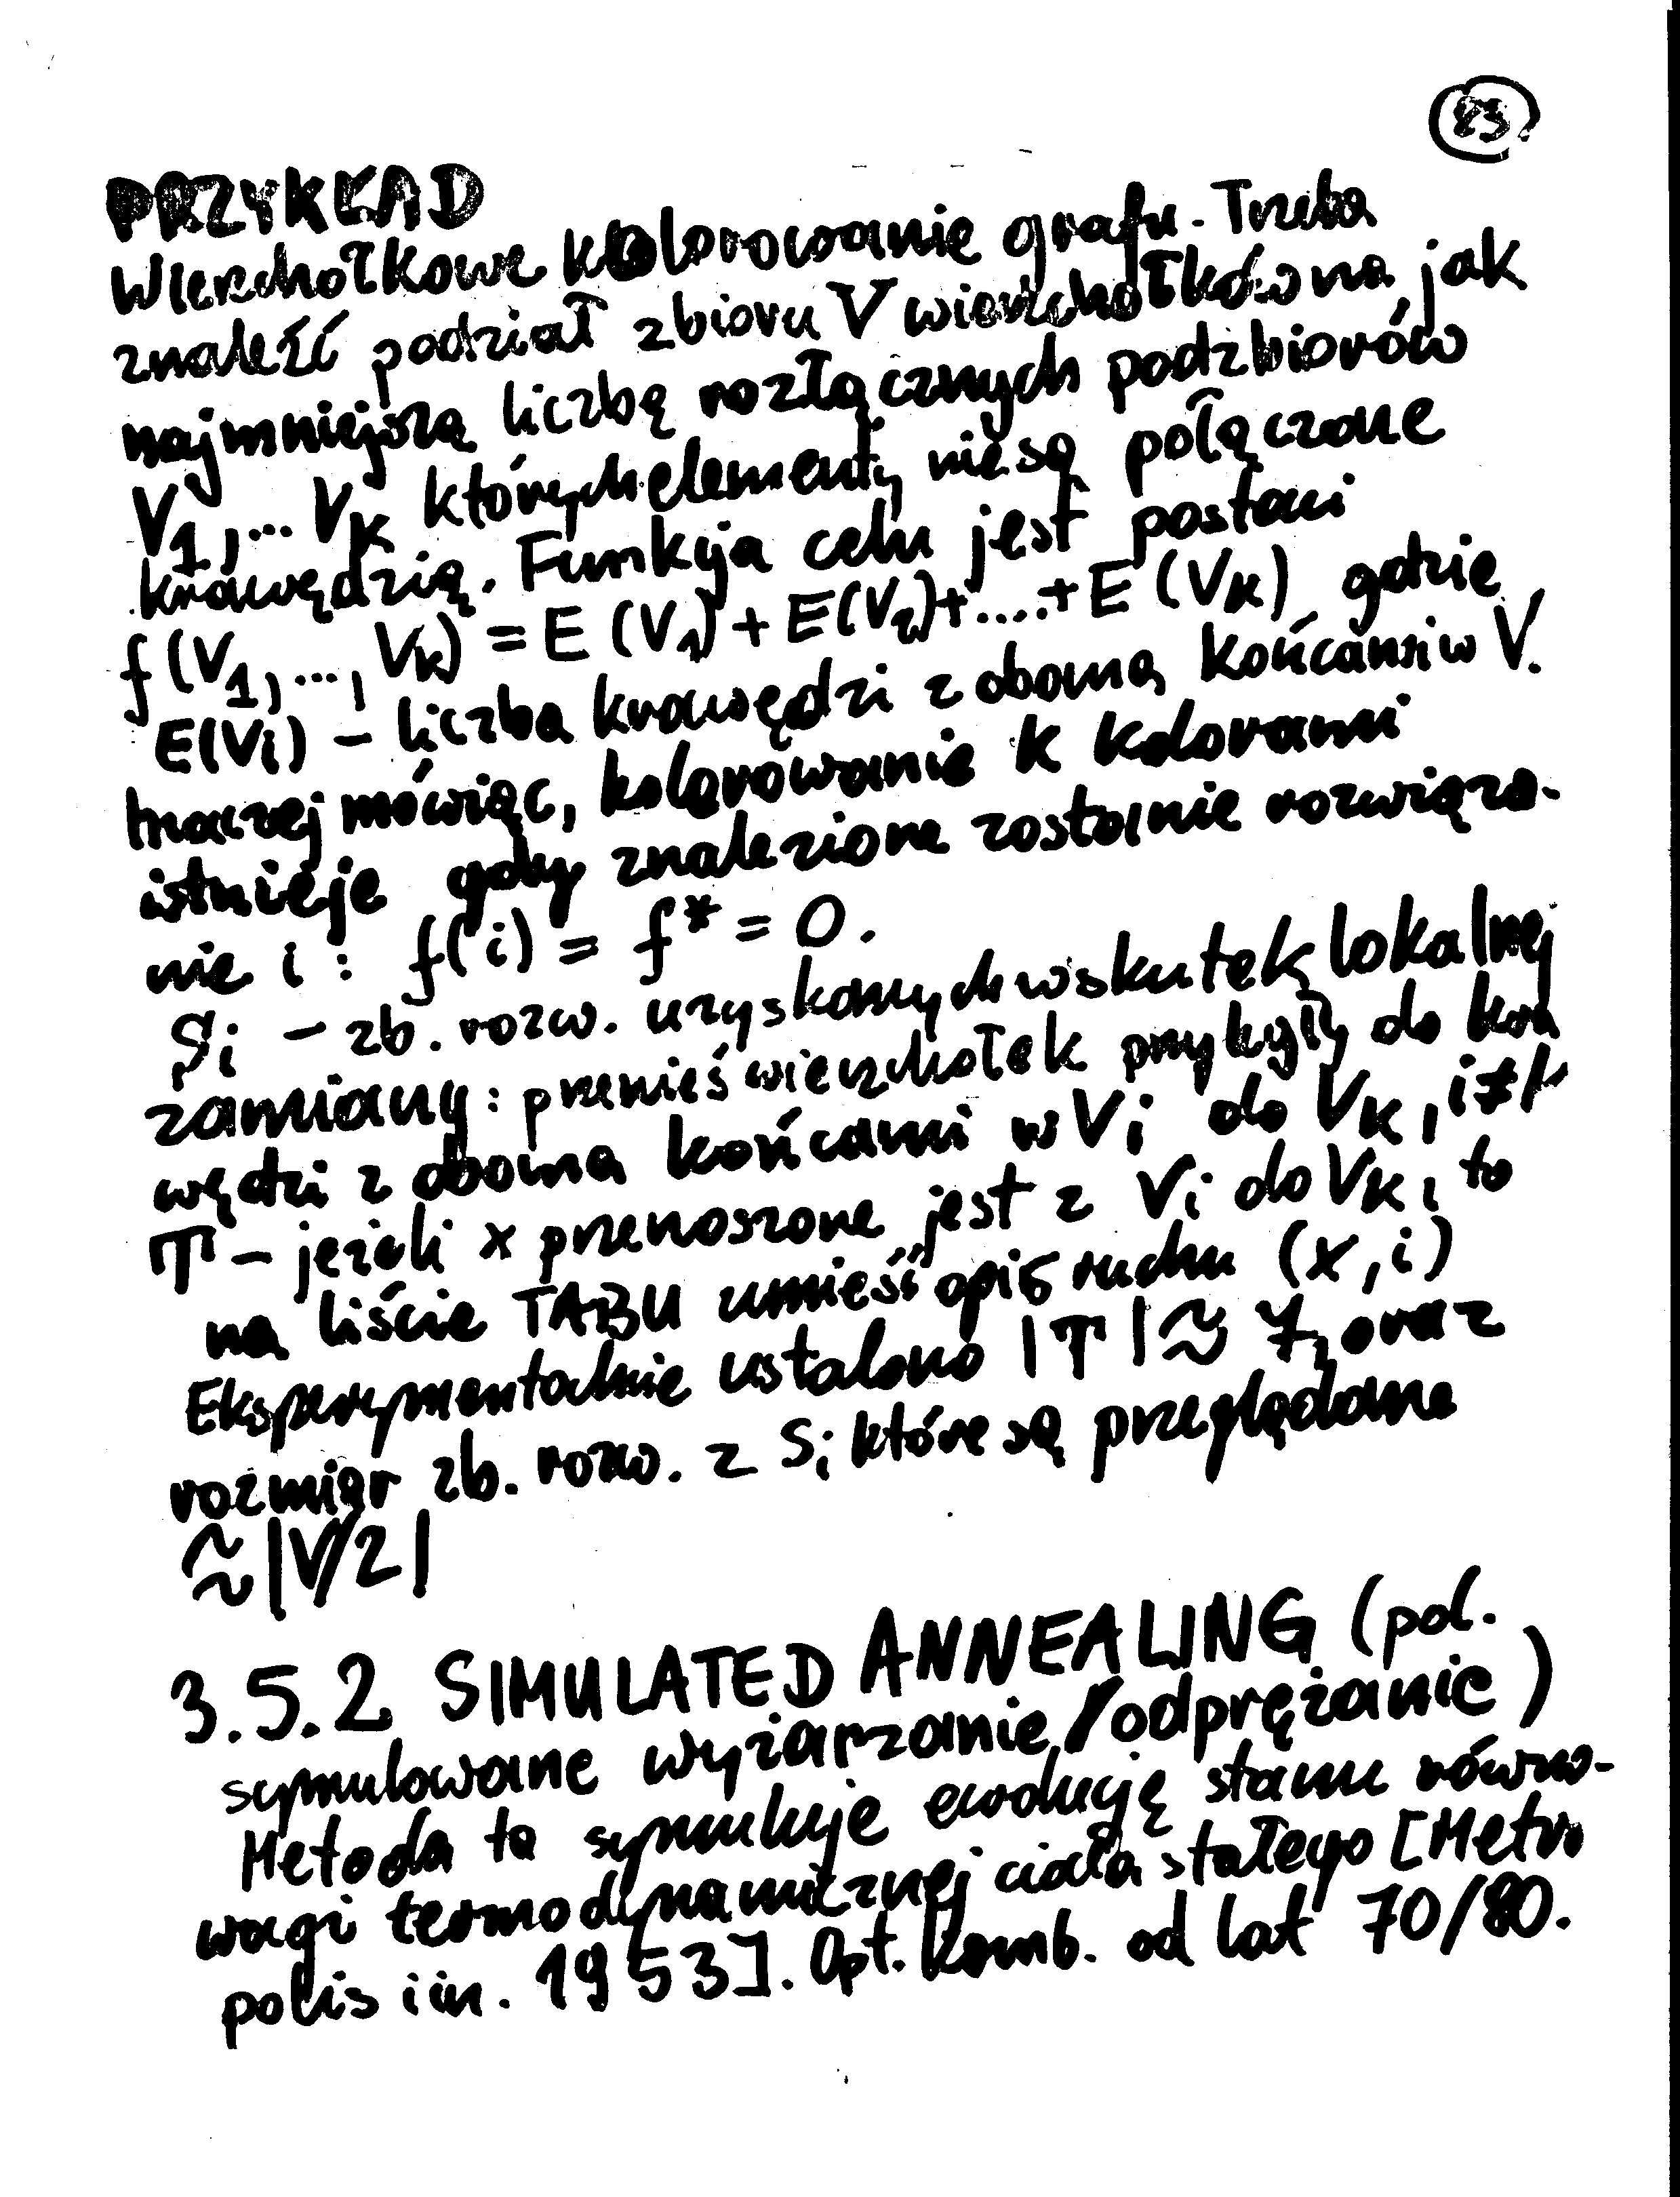 83
PRZYKŁAD
Wierzchołkowe kolorowanie grafu. Trzeba
znaleźć podział zbioru V wierzchołków na jak
najmniejszą liczbę rozłącznych podzbiorów
V1,... VK których elementy nie są połączone
krawędzią. Funkcja celu jest postaci
f(V1,...,Vk) = E(V1) + E(V2)+....+E(VK) gdzie
E(Vi) - liczba krawędzi z oboma końcami w V.
Inaczej mówiąc, kolorowanie K kolorami
istnieje gdy znalezione zostanie rozwiąza-
nie i : f(i) = f* = 0.
Si - zb. rozw. uzyskanych wskutek lokalnej
zamiany: przenieś wierzchołek przyległy do kra
wędzi z oboma końcami w Vi do VK, i≠k
T - jeżeli x przenoszone jest z Vi do VK, to
na liście TABU umieść opis ruchu (x,i)
Eksperymentalnie ustalono |T| ≅ 7, oraz
rozmiar zb. rozw. z Si które są przeglądane
≈|V/2|
3.5.2 SIMULATED ANNEALING (pol.
symulowane wyżarzanie/odprężanie)
Metoda ta symuluje ewolucję stanu równo-
wagi termodynamicznej ciała stałego [Metro
polis i in. 1953]. Opt. komb. od lat 70/80.